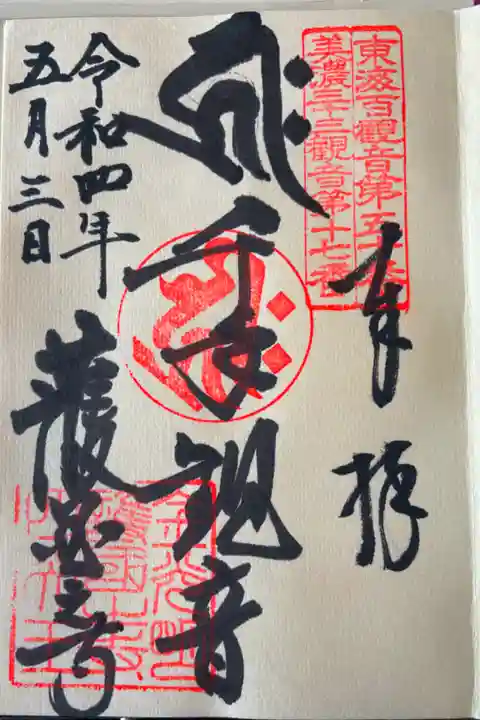 東海百觀音第五十番
美濃三十三觀音第十七番
奉拝
ह्रीः千手観音
護国之寺
令和四年
五月三日